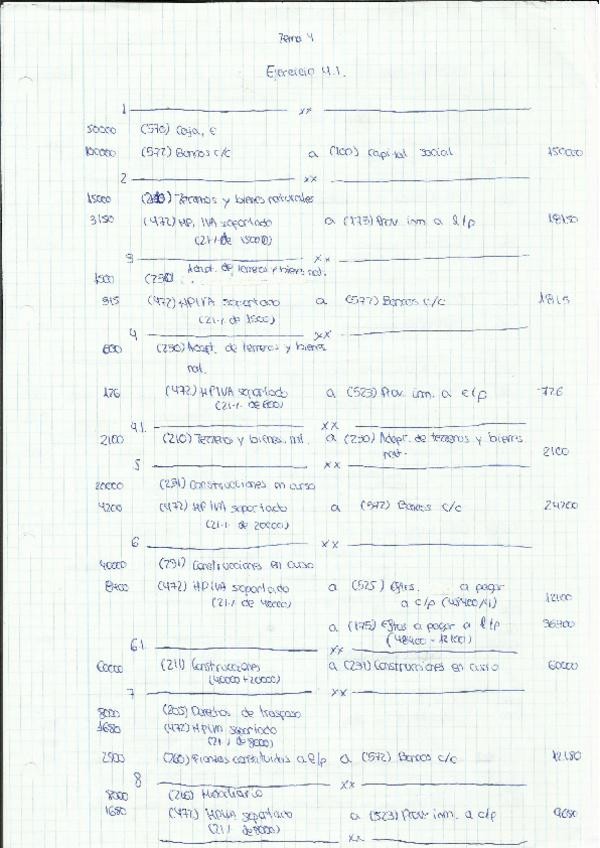 Tema 4
Ejercicio 4.1.
1 xx
50000 (570) Caja, €
100000 (572) Bancos c/c a (100) Capital social 150000
2 xx
15000 (210) Terrenos y bienes naturales
3150 (472) HP, IVA soportado a (173) Prov. inm a l/p 18150
(21% de 15000)
3 xx
Adapt. de terrenos y bienes nat.
1500 (230)
315 (472) HP IVA soportado a (572) Bancos c/c 1815
(21% de 1500)
4 xx
600 (230) Adapt. de terrenos y bienes
nat.
126 (472) HP IVA soportado a (523) Prov. inm. a c/p 726
(21% de 600)
4.1. xx
2100 (210) Terrenos y bienes nat. a (230) Adapt. de terrenos y bienes
nat. 2100
5 xx
20000 (231) Construcciones en curso
4200 (472) HP IVA soportado a (572) Bancos c/c 24200
(21% de 20000)
6 xx
40000 (231) Construcciones en curso
8400 (472) HP IVA soportado a (525) Eftos. a pagar
(21% de 40000) a c/p (48400/4) 12100
a (175) Eftos a pagar a l/p 36300
(48400 - 12100)
6.1 xx
60000 (211) Construcciones a (231) Construcciones en curso 60000
(40000+20000)
7 xx
8000 (205) Derechos de traspaso
1680 (472) HP IVA soportado
(21% de 8000)
2500 (260) Fianzas constituidas a l/p a (572) Bancos c/c 12180
8 xx
8000 (216) Mobiliario
1680 (472) HP IVA soportado a (523) Prov. inm. a c/p 9680
(21% de 8000)
xx